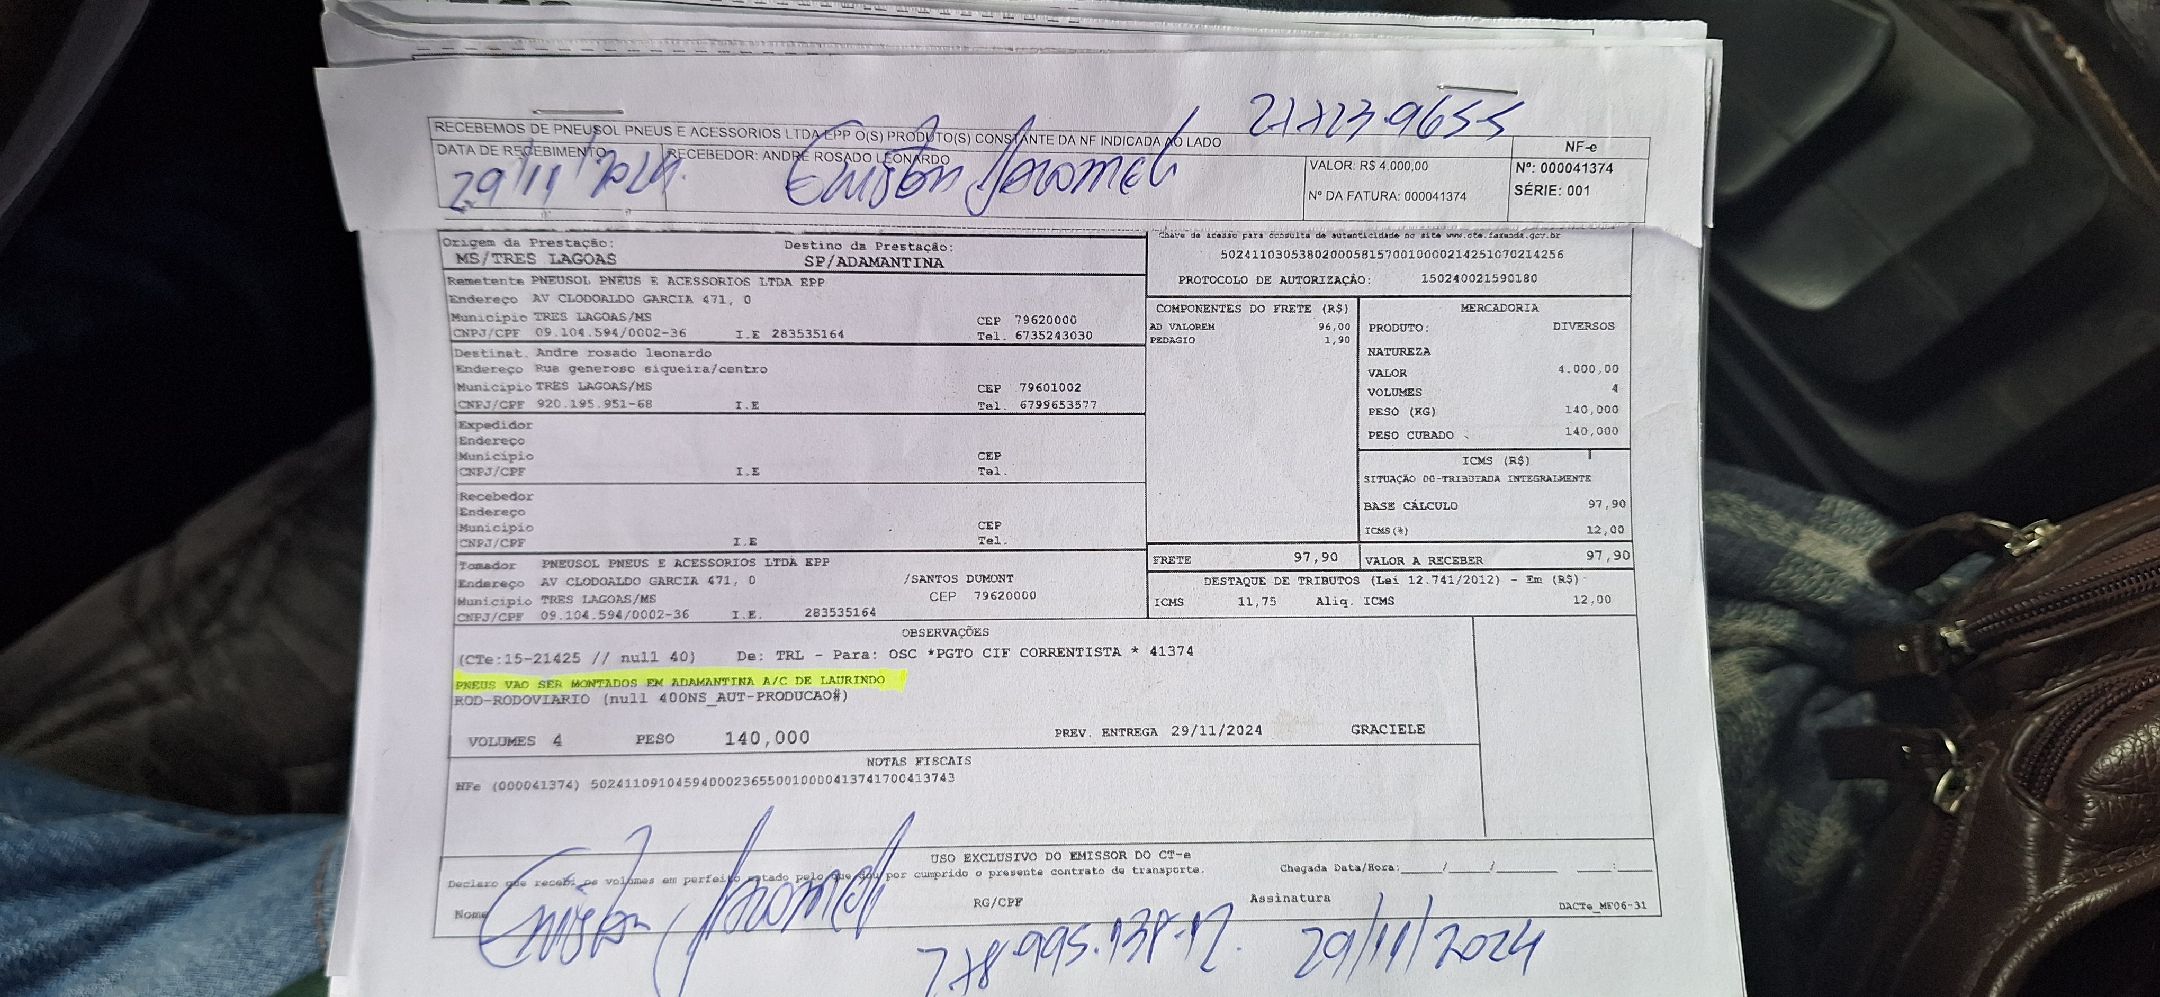 27723.9655
RECEBEMOS DE PNEUSOL PNEUS E ACESSORIOS LTDA EPP O(S) PRODUTO(S) CONSTANTE DA NF INDICADA AO LADO
DATA DE RECEBIMENTO RECEBEDOR: ANDRE ROSADO LEONARDO
29/11/2024.
VALOR: R$ 4.000,00
Nº DA FATURA: 000041374
NF-e
Nº: 000041374
SÉRIE: 001
Origem da Prestação: Destino da Prestação:
MS/TRES LAGOAS SP/ADAMANTINA
Chave de acesso para consulta de autenticidade no site www.cte.fazenda.gov.br
50241103053802000581570010000214251070214256
PROTOCOLO DE AUTORIZAÇÃO: 150240021590180
Remetente PNEUSOL PNEUS E ACESSORIOS LTDA EPP
Endereço AV CLODOALDO GARCIA 471, 0
Municipio TRES LAGOAS/MS CEP 79620000
CNPJ/CPF 09.104.594/0002-36 I.E 283535164 Tel. 6735243030
Destinat. Andre rosado leonardo
Endereço Rua generoso siqueira/centro
Municipio TRES LAGOAS/MS CEP 79601002
CNPJ/CPF 920.195.951-68 I.E Tel. 6799653577
Expedidor
Endereço
Municipio CEP
CNPJ/CPF I.E Tel.
Recebedor
Endereço
Municipio CEP
CNPJ/CPF I.E Tel.
Tomador PNEUSOL PNEUS E ACESSORIOS LTDA EPP
Endereço AV CLODOALDO GARCIA 471, 0 /SANTOS DUMONT
Municipio TRES LAGOAS/MS CEP 79620000
CNPJ/CPF 09.104.594/0002-36 I.E. 283535164
COMPONENTES DO FRETE (R$)
AD VALOREM 96,00
PEDAGIO 1,90
MERCADORIA
PRODUTO: DIVERSOS
NATUREZA
VALOR 4.000,00
VOLUMES 4
PESO (KG) 140,000
PESO CUBADO 140,000
ICMS (R$)
SITUAÇÃO 00-TRIBUTADA INTEGRALMENTE
BASE CÁLCULO 97,90
ICMS(%) 12,00
FRETE 97,90 VALOR A RECEBER 97,90
DESTAQUE DE TRIBUTOS (Lei 12.741/2012) - Em (R$)
ICMS 11,75 Aliq. ICMS 12,00
OBSERVAÇÕES
(CTe:15-21425 // null 40) De: TRL - Para: OSC *PGTO CIF CORRENTISTA * 41374
PNEUS VAO SER MONTADOS EM ADAMANTINA A/C DE LAURINDO
ROD-RODOVIARIO (null 400NS_AUT-PRODUCAO#)
VOLUMES 4 PESO 140,000 PREV. ENTREGA 29/11/2024 GRACIELE
NOTAS FISCAIS
NFe (000041374) 50241109104594000236550010000413741700413743
USO EXCLUSIVO DO EMISSOR DO CT-e
Declaro que recebi os volumes em perfeito estado pelo que dou por cumprido o presente contrato de transporte.
Chegada Data/Hora:____/____/____ ___:___
Nome RG/CPF Assinatura DACTe_MF06-31
29/11/2024